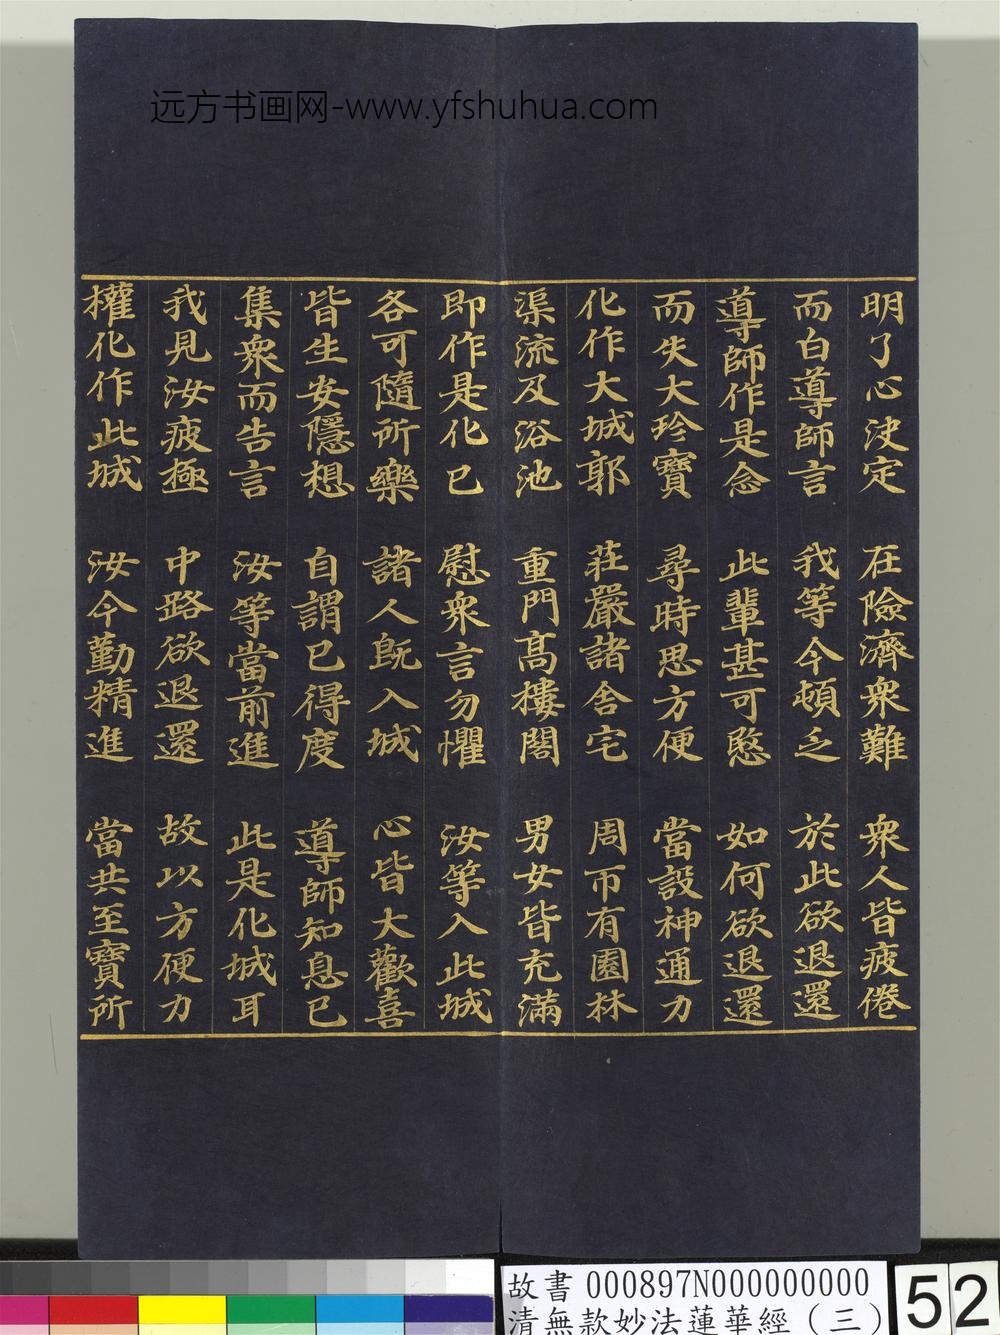 远方书画网-www.yfshuhua.com
明了心决定 在險濟衆難 衆人皆疲倦
而白導師言 我等今頓乏 於此欲退還
導師作是念 此輩甚可愍 如何欲退還
而失大珍寶 尋時思方便 當設神通力
化作大城郭 莊嚴諸舍宅 周帀有園林
渠流及浴池 重門高樓閣 男女皆充滿
即作是化已 慰衆言勿懼 汝等入此城
各可隨所樂 諸人旣入城 心皆大歡喜
皆生安隱想 自謂已得度 導師知息已
集衆而告言 汝等當前進 此是化城耳
我見汝疲極 中路欲退還 故以方便力
權化作此城 汝今勤精進 當共至寶所
故書 000897N000000000
清無款妙法蓮華經(三)
52